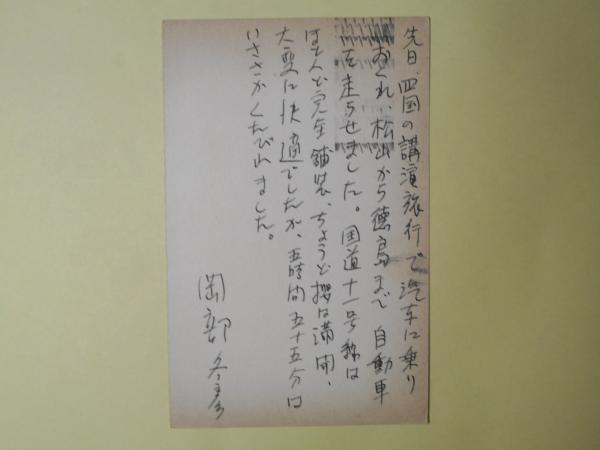 先日、四国の講演旅行で汽車に乗り
おくれ、松山から徳島まで 自動車
を走らせました。国道十一号線は
ほとんど完全舗装、ちょうど櫻は満開、
大変に快適でしたが、五時間五十五分は
いささかくたびれました。
岡部冬彦